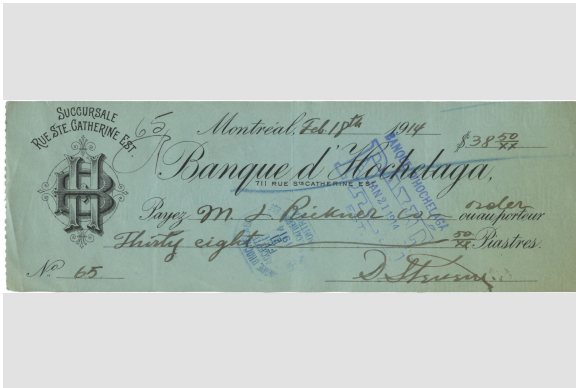 SUCCURSALE
RUE STE. CATHERINE EST.
65
Montréal, Feb. 18th 1914
$38 50/xx
Banque d'Hochelaga,
711 RUE STE CATHERINE EST
BANQUE D'HOCHELAGA
Payez M J Rickner Co order
ou au porteur
Thirty eight 50/xx Piastres.
No 65
D. Stevens